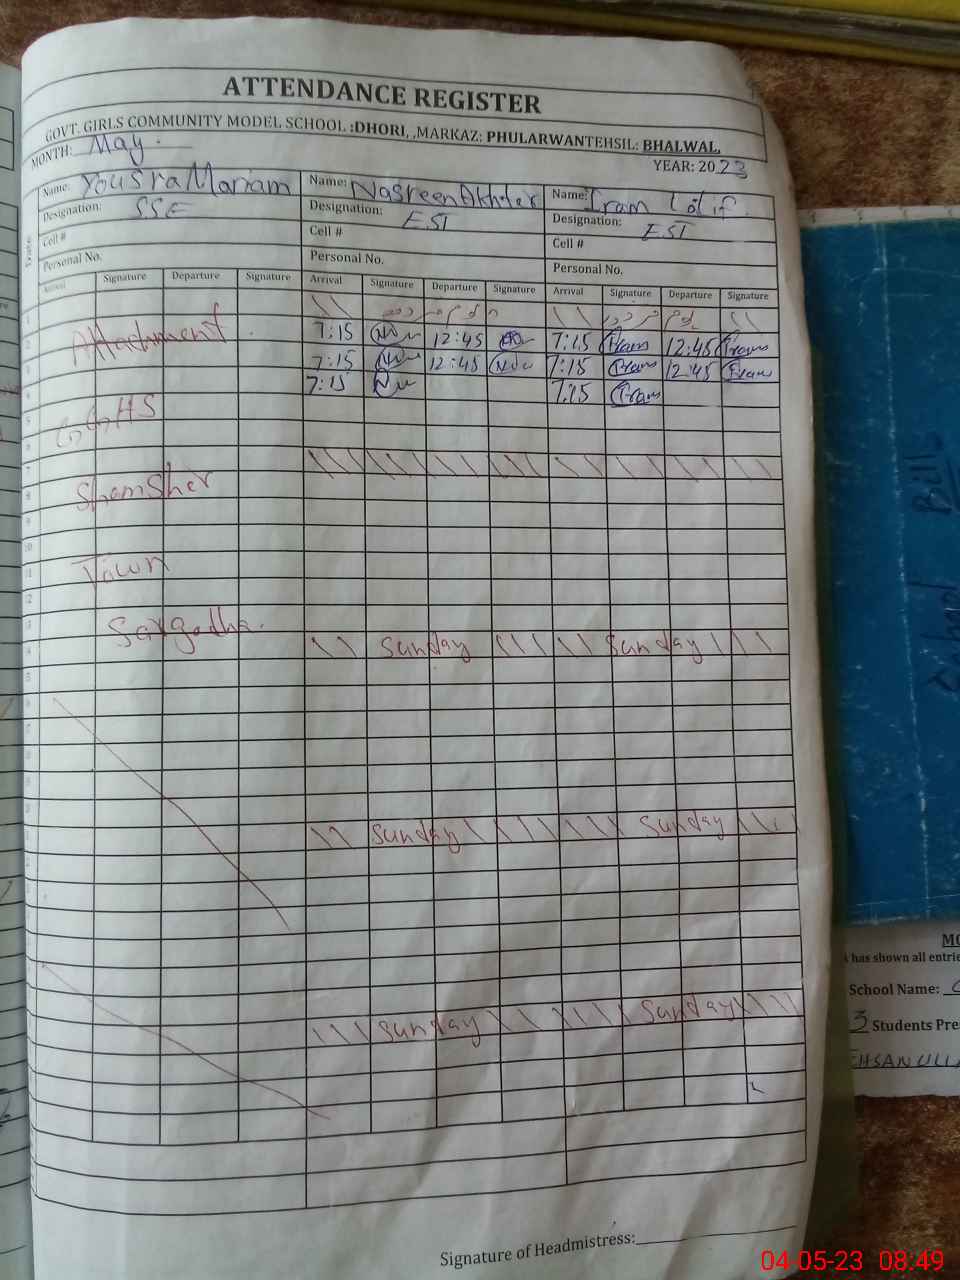 ATTENDANCE REGISTER
GOVT. GIRLS COMMUNITY MODEL SCHOOL :DHORI, ,MARKAZ: PHULARWANTEHSIL: BHALWAL,
MONTH: May. YEAR: 2023
Date
Name: Yousra Mariam Name: Nasreen Akhter Name: Iram Latif.
Designation: SSE Designation: EST Designation: EST
Cell # Cell # Cell #
Personal No. Personal No. Personal No.
Arrival Signature Departure Signature Arrival Signature Departure Signature Arrival Signature Departure Signature
1
2 Attachment 7:15 12:45 7:15 Iram 12:45 Iram
3 7:15 12:45 7:15 Iram 12:45 Iram
4 7:15 7:15 Iram
5 GGHS
6
7
8 Shamsher
9
10
11 Town
12
13 Sargodha.
14 Sunday Sunday
Sunday Sunday
Sunday Sunday
Signature of Headmistress:
Bill
MO
has shown all entrie
School Name:
3 Students Pre
EHSANULLA
04-05-23 08:49